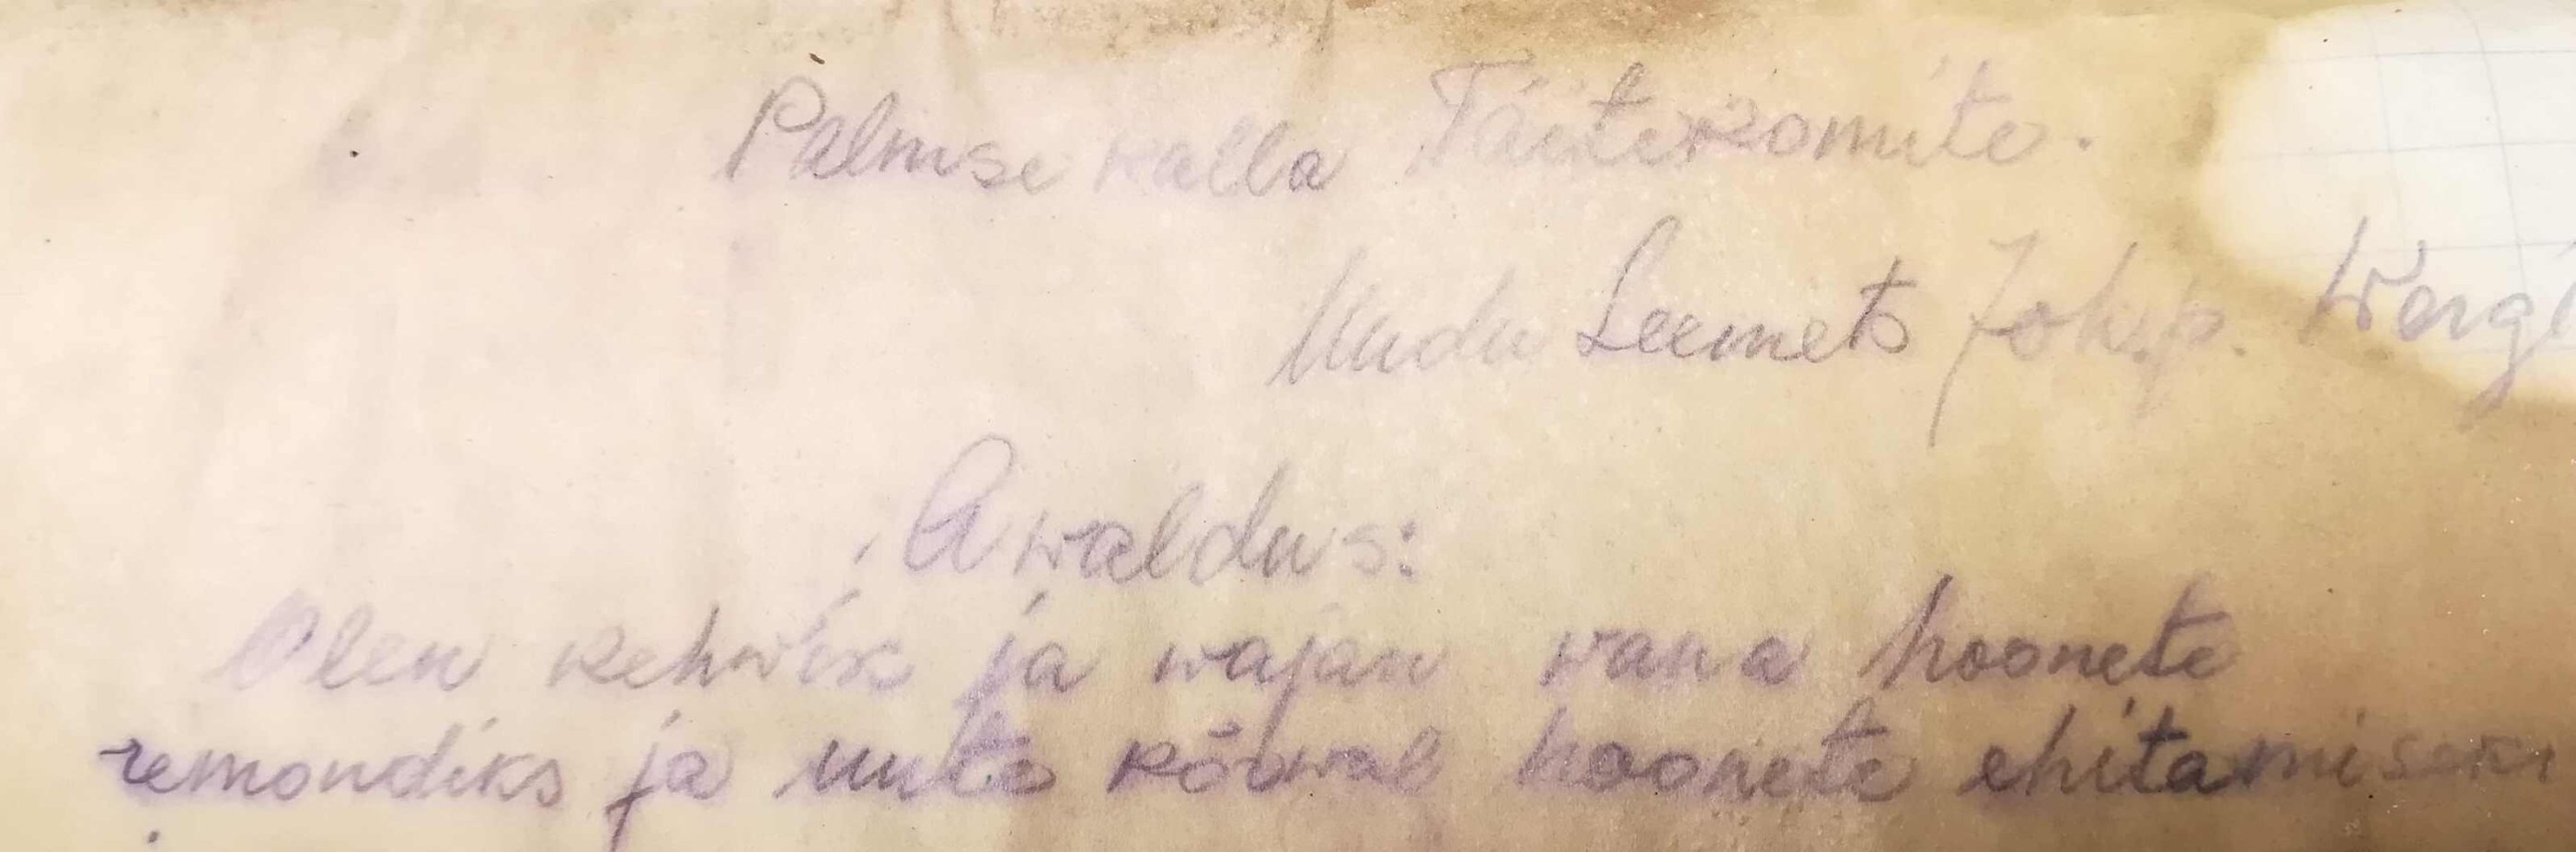 Palmse walla Täitekomite.
Leemets Joh. p.
Awaldus:
Olen kehwik ja wajan wana hoonete
remondiks ja uute kõrwal hoonete ehitamiseks